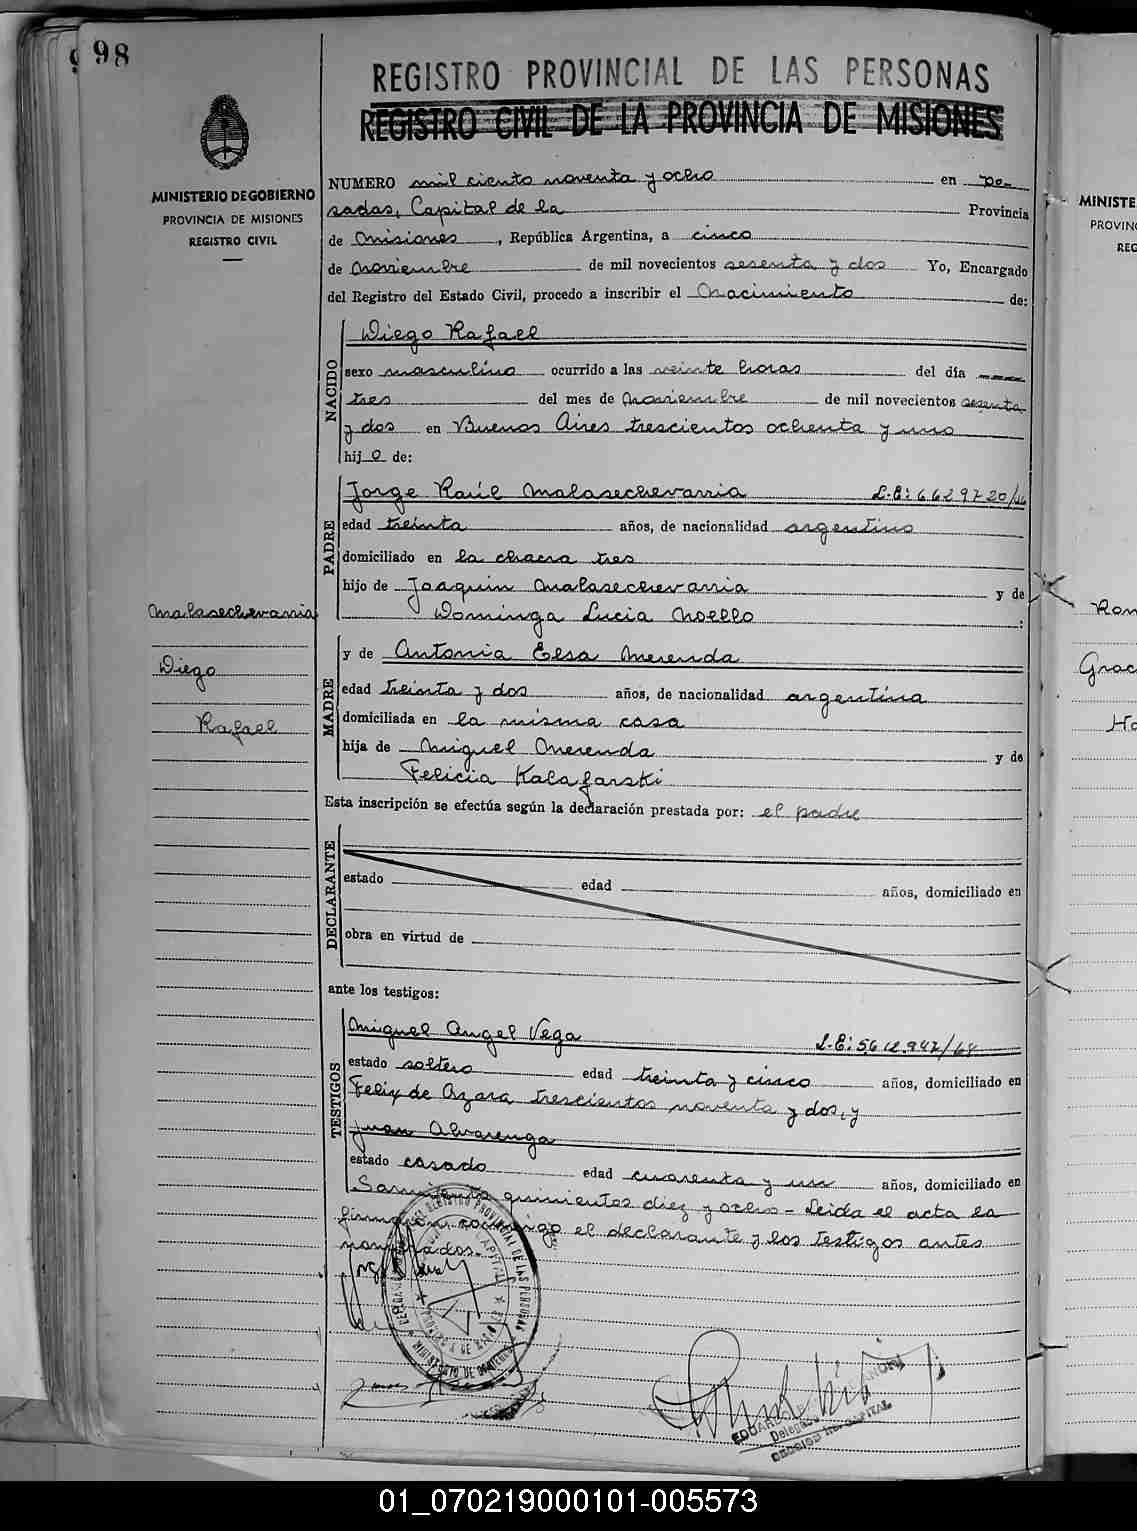 98
REGISTRO PROVINCIAL DE LAS PERSONAS
REGISTRO CIVIL DE LA PROVINCIA DE MISIONES
MINISTERIO DE GOBIERNO
PROVINCIA DE MISIONES
REGISTRO CIVIL
NUMERO mil ciento noventa y ocho en Po-
sadas, Capital de la Provincia
de Misiones, República Argentina, a cinco
de Noviembre de mil novecientos sesenta y dos Yo, Encargado
del Registro del Estado Civil, procedo a inscribir el Nacimiento de:
NACIDO
Diego Rafael
sexo masculino ocurrido a las veinte horas del día
tres del mes de Noviembre de mil novecientos sesenta
y dos en Buenos Aires trescientos ochenta y uno
hijo de:
PADRE
Jorge Raúl Malasechevarria L.E: 6629720/
edad treinta años, de nacionalidad argentino
domiciliado en la chacra tres
hijo de Joaquin Malasechevarria y de
Dominga Lucia Noello :
Malasechevarria
Diego
Rafael
MADRE
y de Antonia Elsa Merenda
edad treinta y dos años, de nacionalidad argentina
domiciliada en la misma casa
hija de Miguel Merenda y de
Felicia Kalafarski
Esta inscripción se efectúa según la declaración prestada por: el padre
DECLARANTE
estado edad años, domiciliado en
obra en virtud de
ante los testigos:
TESTIGOS
Miguel Angel Vega L.E: 5.612.947/64
estado soltero edad treinta y cinco años, domiciliado en
Felix de Azara trescientos noventa y dos, y
Juan Alvarenga
estado casado edad cuarenta y un años, domiciliado en
Sarmiento quinientos diez y ocho - Leida el acta la
firmaron conmigo el declarante y los testigos antes
nombrados.-
REGISTRO PROVINCIAL DE LAS PERSONAS
CAPITAL
Delegado
MINISTE
PROVIN
REG
Rom
Grac
Ha
01_070219000101-005573